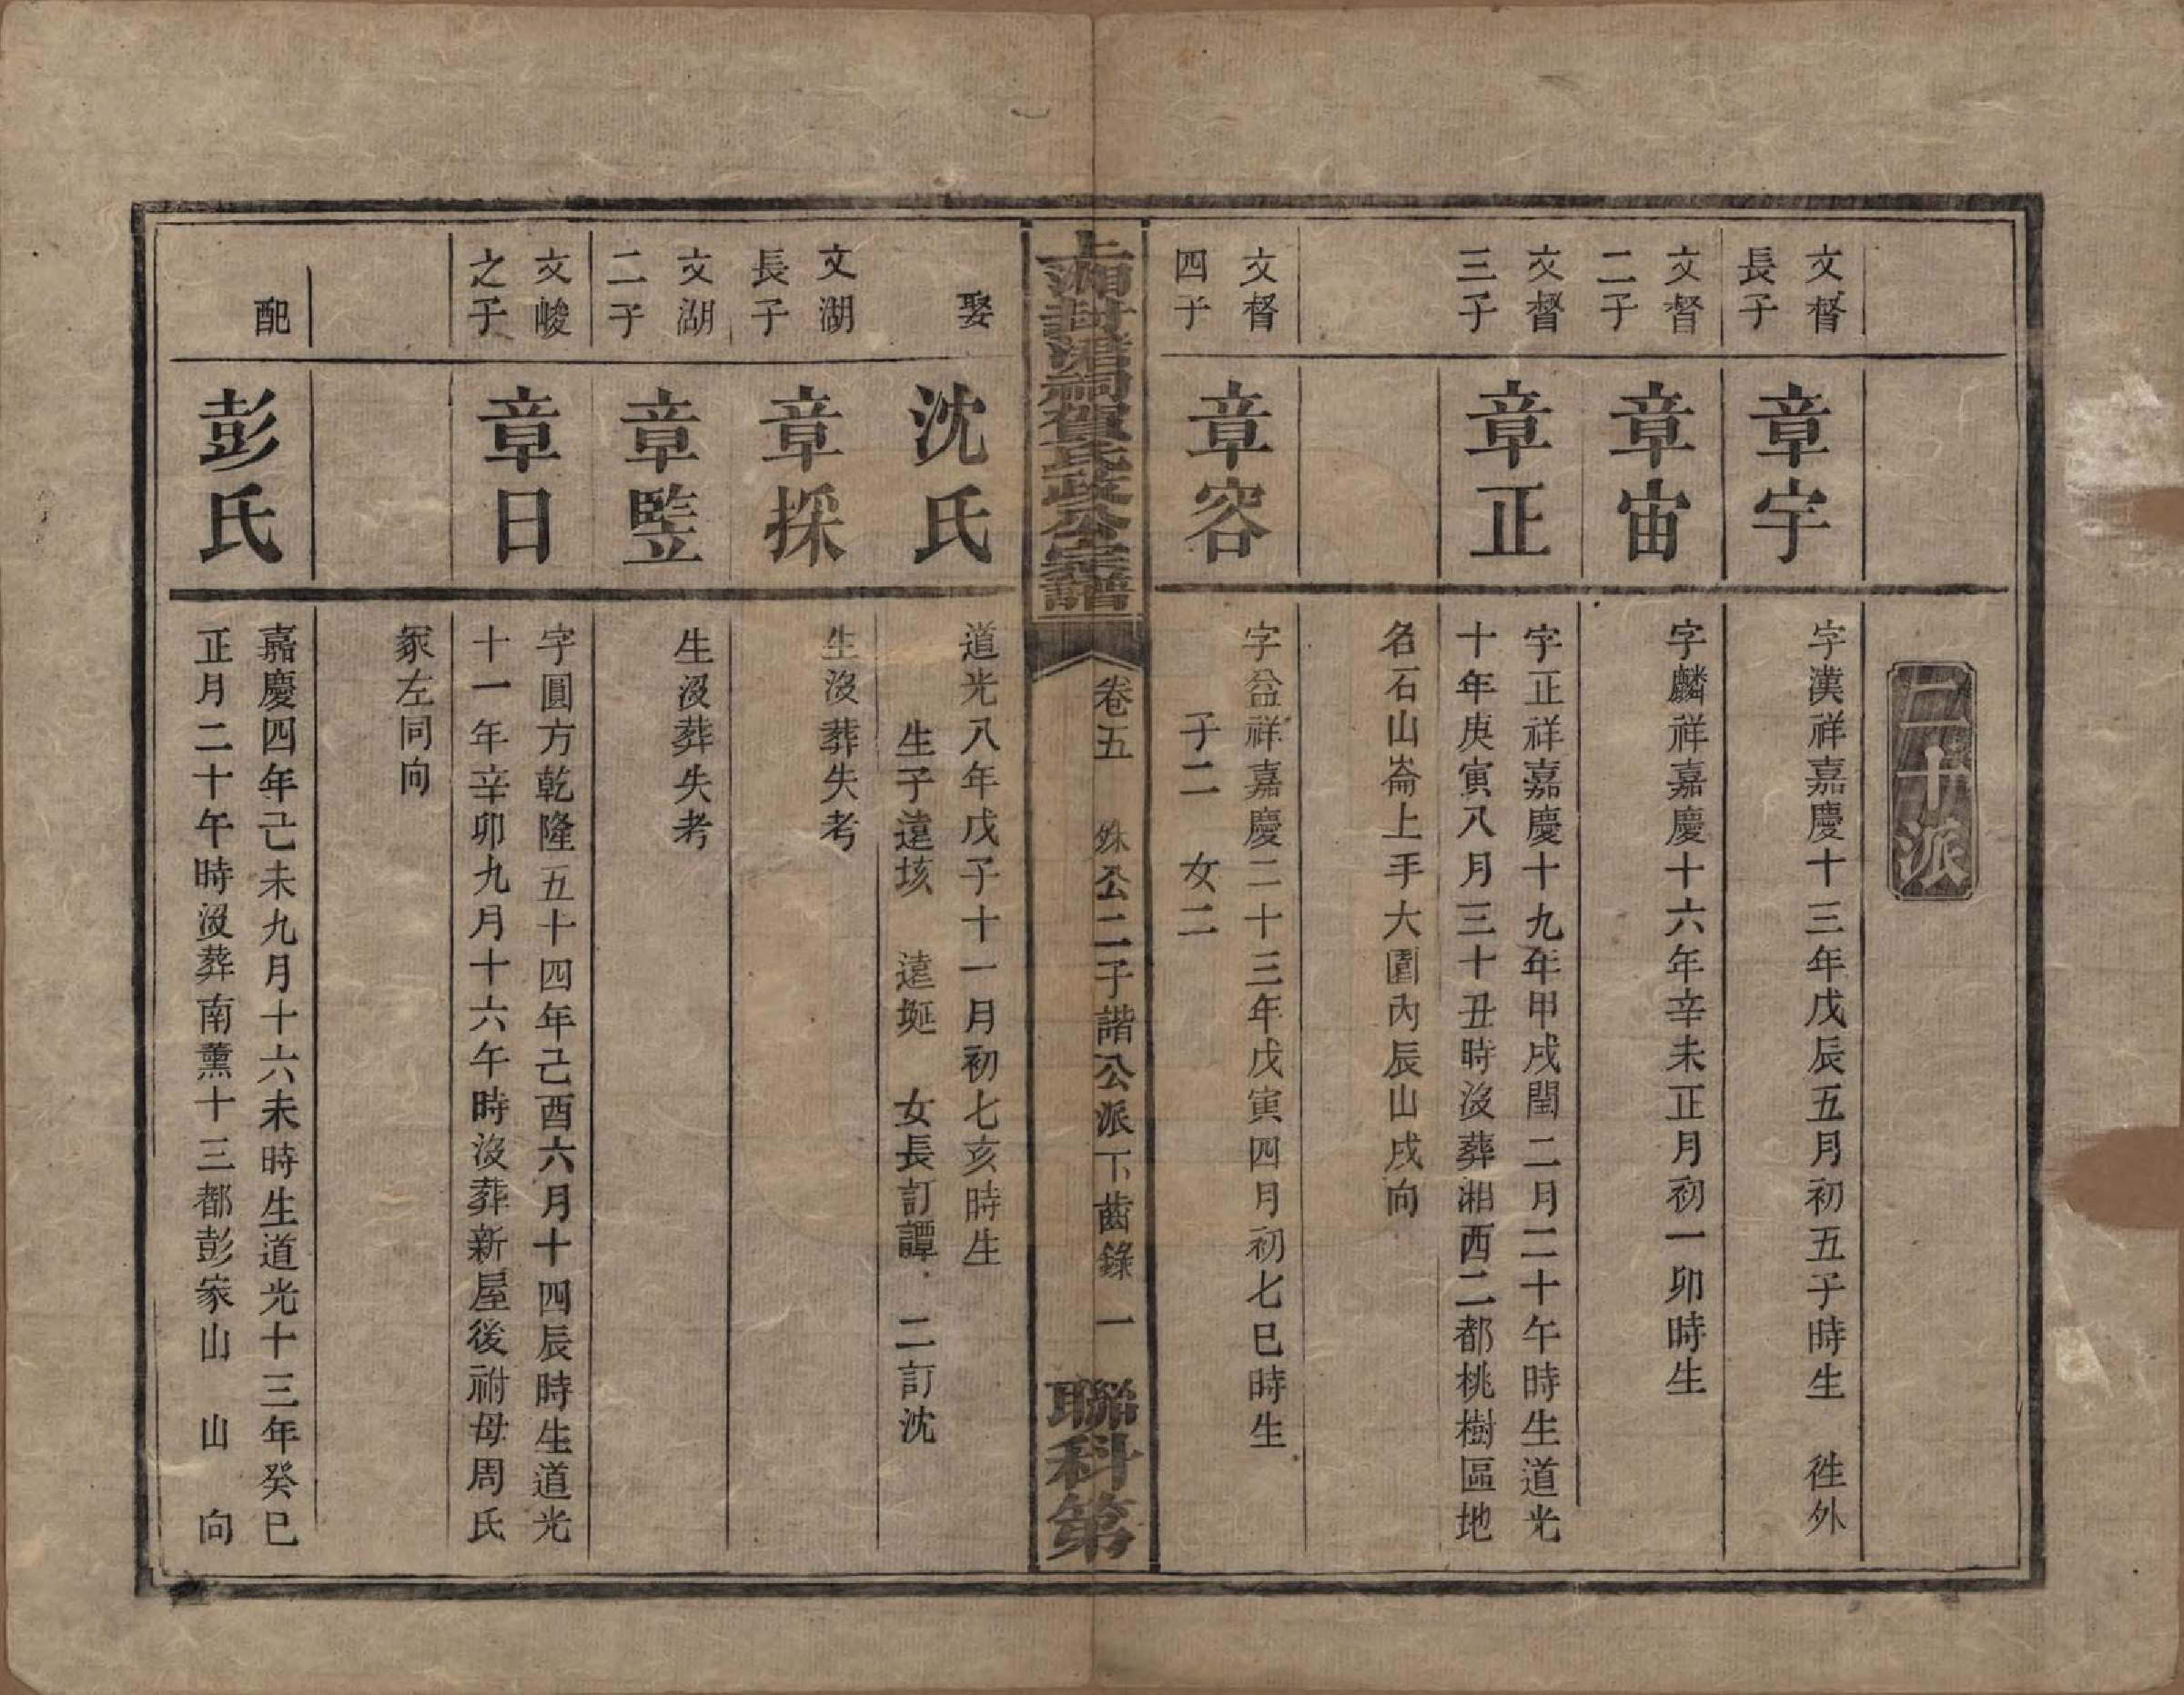 二十派
文督
長子
章宇
字漢祥嘉慶十三年戊辰五月初五子時生 徃外
文督
二子
章宙
字麟祥嘉慶十六年辛未正月初一卯時生
文督
三子
章正
字正祥嘉慶十九年甲戌閏二月二十午時生道光
十年庚寅八月三十丑時没葬湘西二都桃樹區地
名石山崙上手大園內辰山戌向
文督
四子
章容
字益祥嘉慶二十三年戊寅四月初七巳時生
子二 女二
上湘封渚祠賀氏政公宗譜
卷五 銖公二子諧公派下齒錄 一
聯科第
娶
沈氏
道光八年戊子十一月初七亥時生
生子遠垓 遠埏 女長訂譚 二訂沈
文湖
長子
章採
生没葬失考
文湖
二子
章竪
生没葬失考
文峻
之子
章日
字圓方乾隆五十四年己酉六月十四辰時生道光
十一年辛卯九月十六午時没葬新屋後祔母周氏
冢左同向
配
彭氏
嘉慶四年己未九月十六未時生道光十三年癸巳
正月二十午時没葬南薰十三都彭家山 山 向